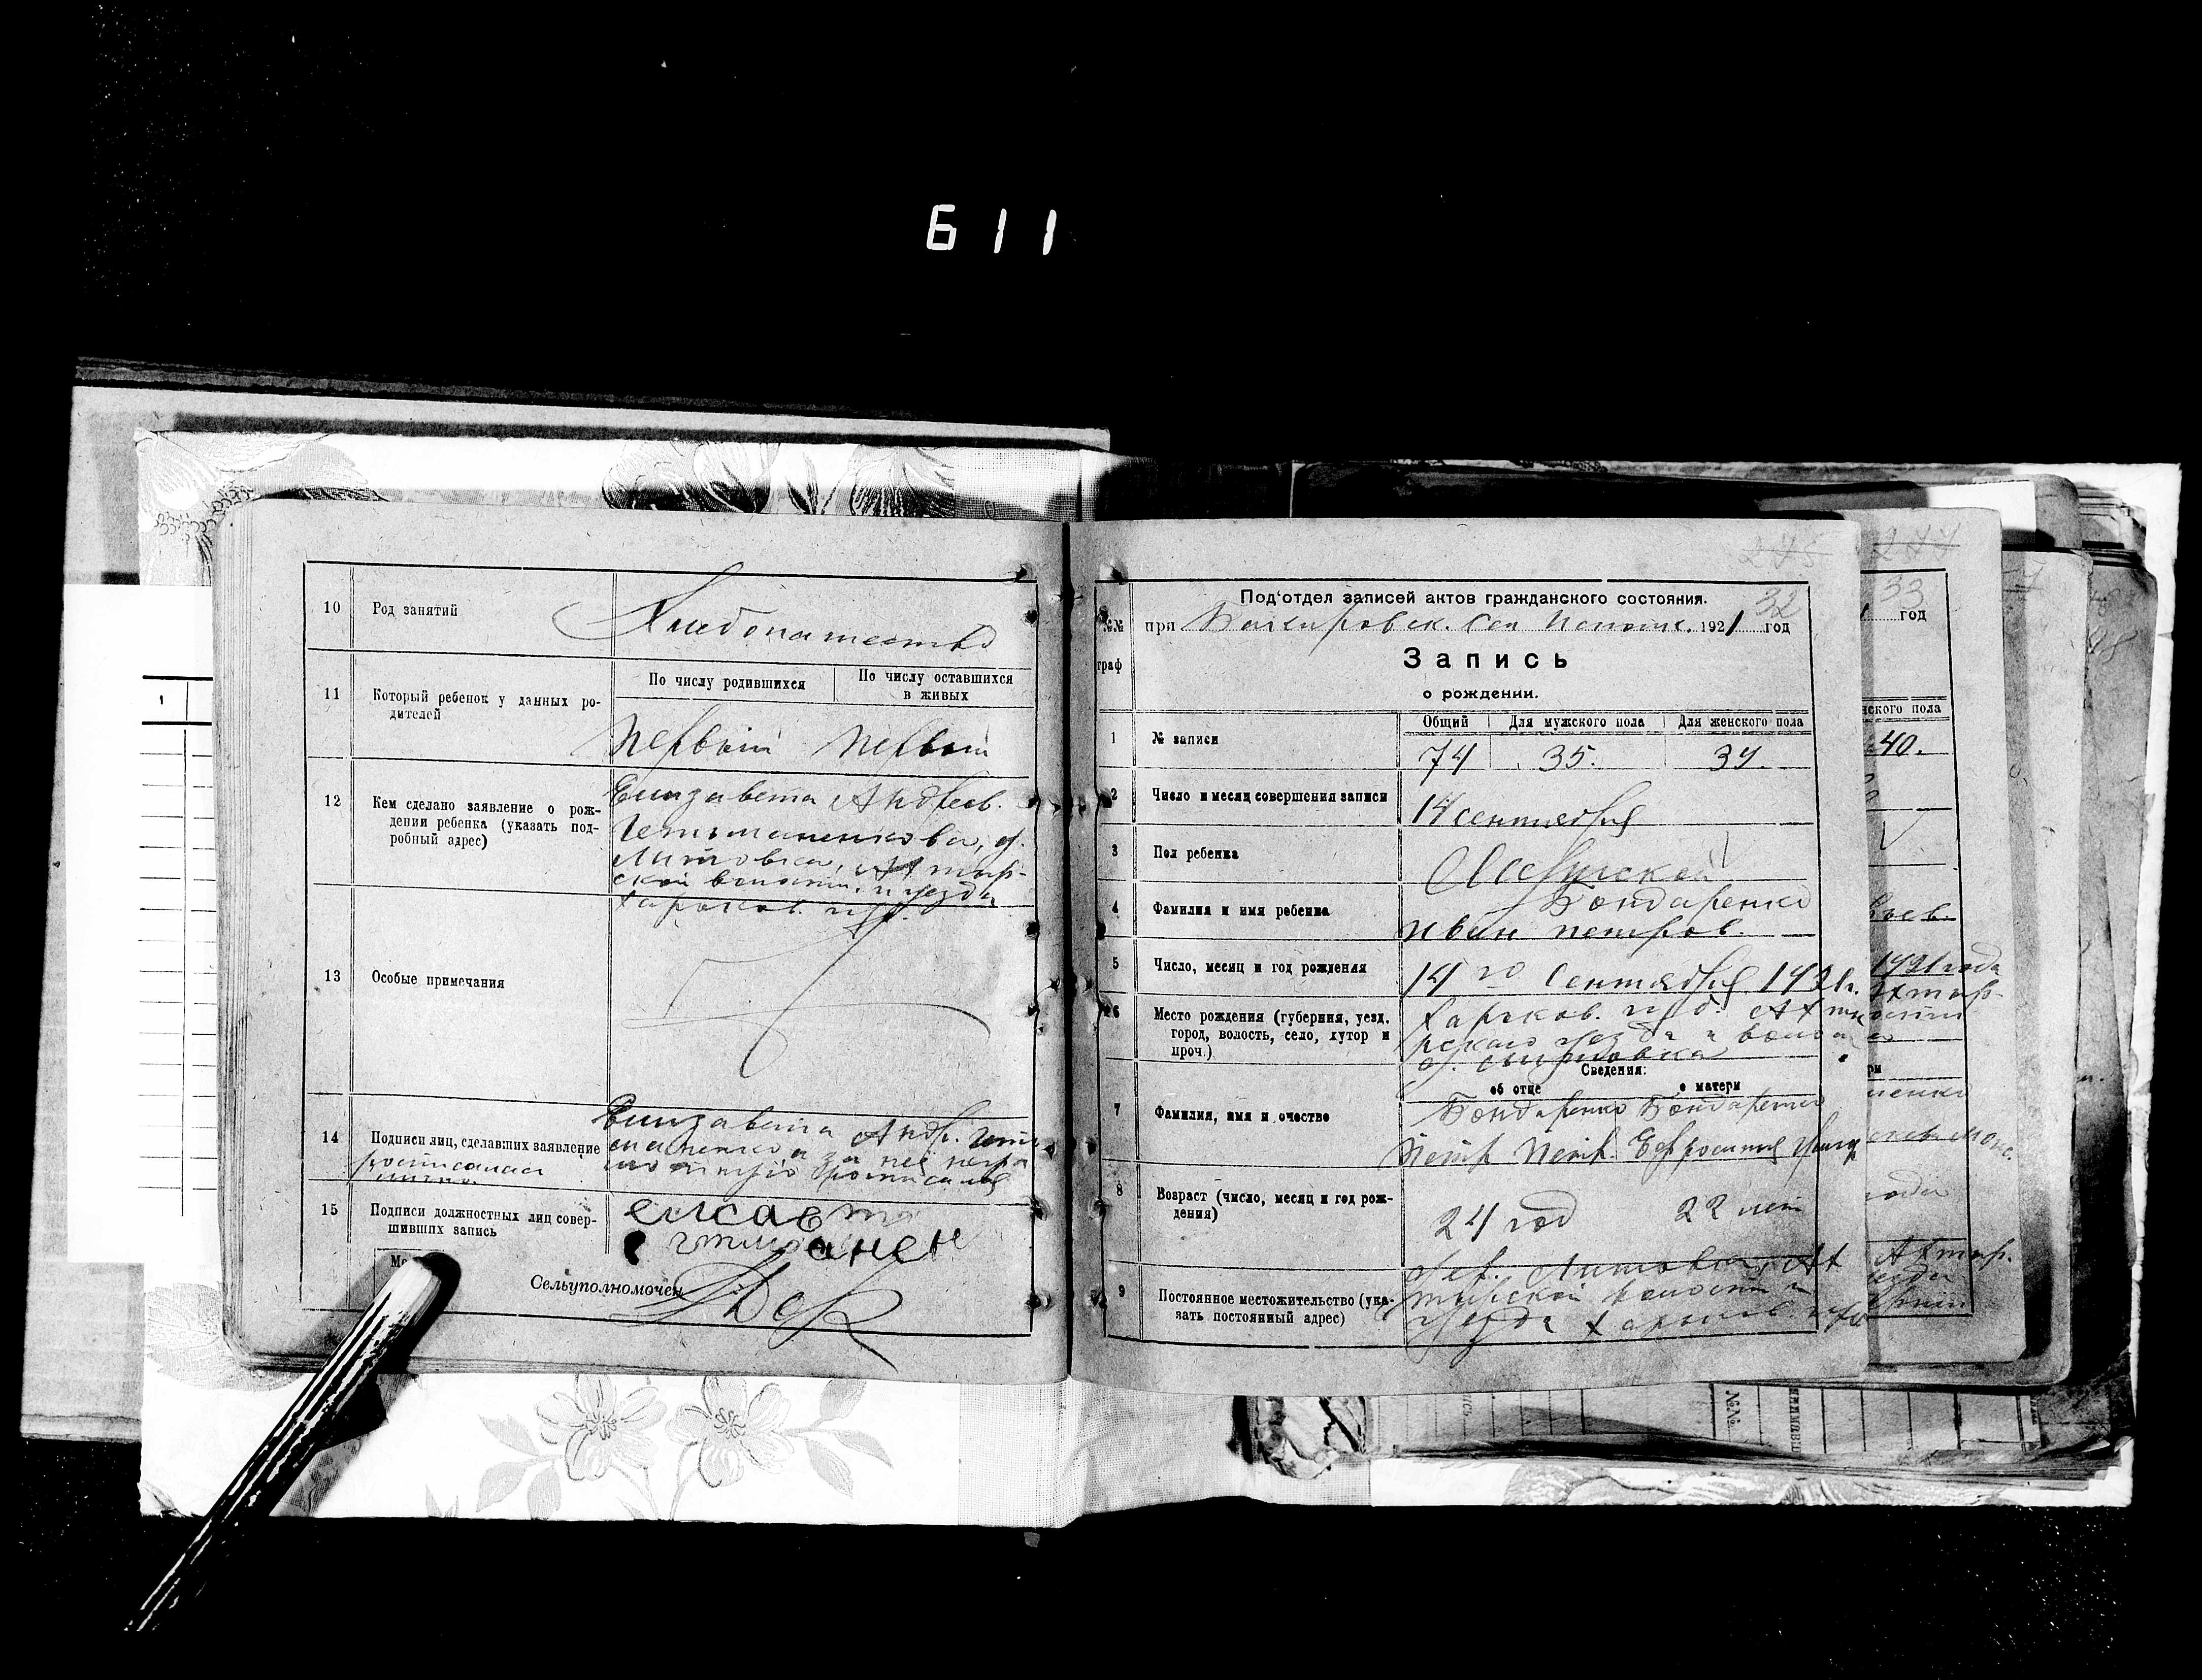 611
10 Род занятий Хлебопашество
11 Который ребенок у данных ро-
дителей
По числу родившихся По числу оставшихся
в живых
первый первый
12 Кем сделано заявление о рож-
дении ребенка (указать под-
робный адрес)
Елизавета Андреев.
Гетьманенкова,
Литовка, Ахтыр-
ской волости, и уезда
Харьков. губ.
13 Особые примечания
14 Подписи лиц, сделавших заявление
Елизавета Андр. Геть
маненко а за неё негра
мотную росписался
росписалась
лично.
15 Подписи должностных лиц совер-
шивших запись
елисавт
гтманен
Сельуполномочен
275
32
Под'отдел записей актов гражданского состояния.
№№ граф
при Сел Исполк. 1921 год
Запись
о рождении.
Общий Для мужского пола Для женского пола
1 № записи 74 35. 39.
2 Число и месяц совершения записи 14 сентября
3 Пол ребенка Мужской
4 Фамилия и имя ребенка Бондаренко
Иван Петров.
5 Число, месяц и год рождения 14 го Сентября 1921г.
6 Место рождения (губерния, уезд,
город, волость, село, хутор и
проч.)
Харьков. губ. Ахты
рского уезда и волости
Литовка
Сведения:
об отце о матери
7 Фамилия, имя и очество Бондаренко Бондаренко
Петр Петр. Ефросиния
8 Возраст (число, месяц и год рож-
дения)
24 год 22 лет
9 Постоянное местожительство (ука-
зать постоянный адрес)
дер. Литовка, Ах
тырской волости и
уезда Харьков. губ.
277
33
год
нского пола
40.
1921 года
Ахтыр-
Ахтыр.